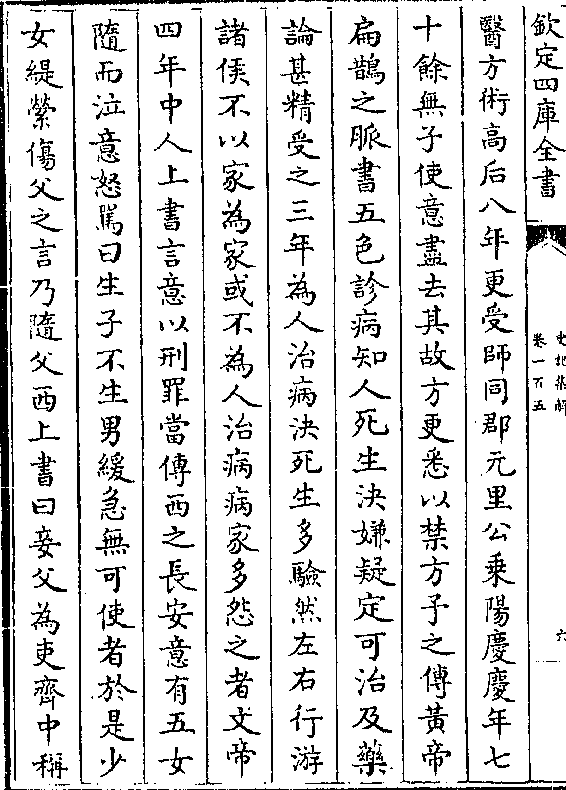 欽定四庫全書
史記集解
卷一百五
六
醫方術高后八年更受師同郡元里公乘陽慶慶年七
十餘無子使意盡去其故方更悉以禁方子之傳黃帝
扁鵲之脈書五色診病知人死生決嫌疑定可治及藥
論甚精受之三年為人治病決死生多驗然左右行游
諸侯不以家為家或不為人治病病家多怨之者文帝
四年中人上書言意以刑罪當傳西之長安意有五女
隨而泣意怒罵曰生子不生男緩急無可使者於是少
女緹縈傷父之言乃隨父西上書曰妾父為吏齊中稱